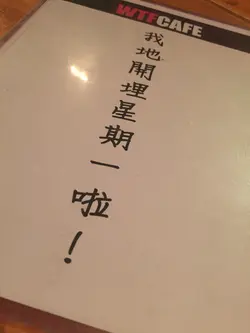 WTFCAFE
我地開埋星期一啦！